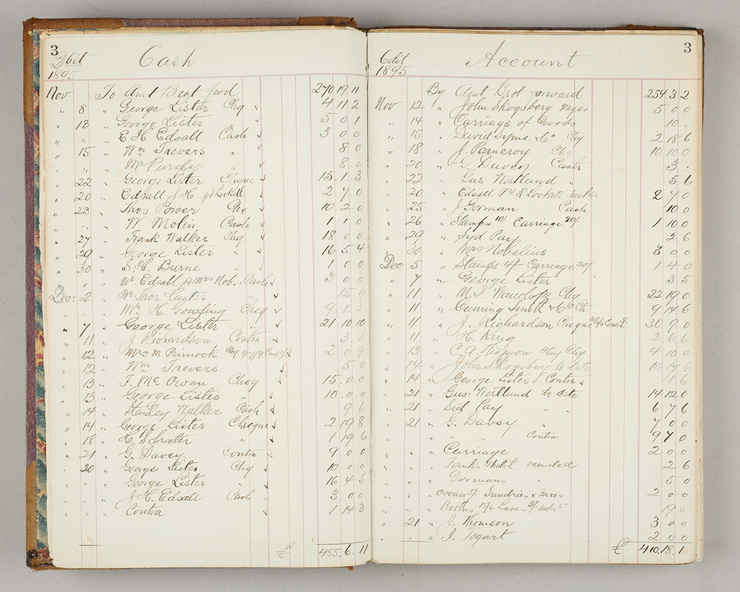 3
Dbit Cash
1895
Nov To Amt Brot fwd 270 19 11
" 8 " George Lister Chq " 4 11 2
" 13 " George Lister " 5 0 1
" " E. H. Edsall Cash 3 0 0
" 15 " Wm Trevers " 8 0
" " Mr Purdie " 8 0
" 22 " George Lister 15 1 3
" 20 " Edsall J H 2 7 0
" 23 " Thos Power Chq 10 2 0
" " W. Molin Cash 1 1 0
" 27 " Frank Walker Chq 18 0 0
" 29 " George Lister " 16 5 4
" 30 " Burne " 1 1 0
" " Mr Edsall Mrs Nob. Cash 3 0 0
Dec 2 " 15 0
" " Mr H Cheq 9 1 3
" 7 " George Lister 21 10 10
" 11 " J. Richardson Contra 3 0
" 12 " Pinnock 2 0 9
" 12 " Wm Trevers 5 0
" 13 " F. Mc Owan Cheq 15 0 0
" 13 " George Lister " 10 0 0
" 14 " Walker Cash 9 6
" 14 " George Lister Cheque 2 19 8
" 18 " " 1 19 6
" 21 " G. Davey Contra 9 0 0
" 20 " George Lister Chq 10 0 0
" George Lister " 16 4 5
" J. H. Edsall Cash 3 0 0
" Contra 1 14 3
£ 455. 6. 11
3
Cdit Account
1895
By Amt Brot forward 254 3 2
Nov 12 " John Skogsberg Wages 5 0 0
" 14 " Carriage of Goods 10
" 15 " David Syme & Co Chq 2 18 6
" 18 " J. Pomeroy Chq 10 10 0
" 20 " G. Davey Cash 3
" 22 " Gus Westlund " 5 6
" 20 " Edsall 2 7 0
" 25 " J. Gorman Cash 10 0
" 26 " Stamps 10/ Carriage 20/ 1 10 0
" 29 " Syd Pay 2 6
" 30 " Mrs Nobelius 3 0 0
Dec 5 " Stamps Carriage 20/ 1 4 0
" 7 " George Lister 3 5
" 11 " Chq 22 19 0
" 11 " Smith 9 14 6
" 11 " J. Richardson Cheque 30 9 0
" 11 " H. King 2 6 6
" 13 " Chq 4 10 0
" 14 " John Skogsberg to date 10 17 6
" 14 " George Lister Contra 1 6
" 21 " Gus Westlund to date 14 12 0
" 21 " Sid Pay " " 6 7 6
" 21 " G. Davey " " 7 0 0
" " Contra 9 7 0
" " Carriage 2 0 0
" " Frank mended 2 6
" " Gorman 5 0
" " Oscar Sundries & Fares 2 0 0
" " Boots 17 0
" 21 " J. Thomson 3 0 0
" " J. Togart 2 0 0
£ 410. 18. 1